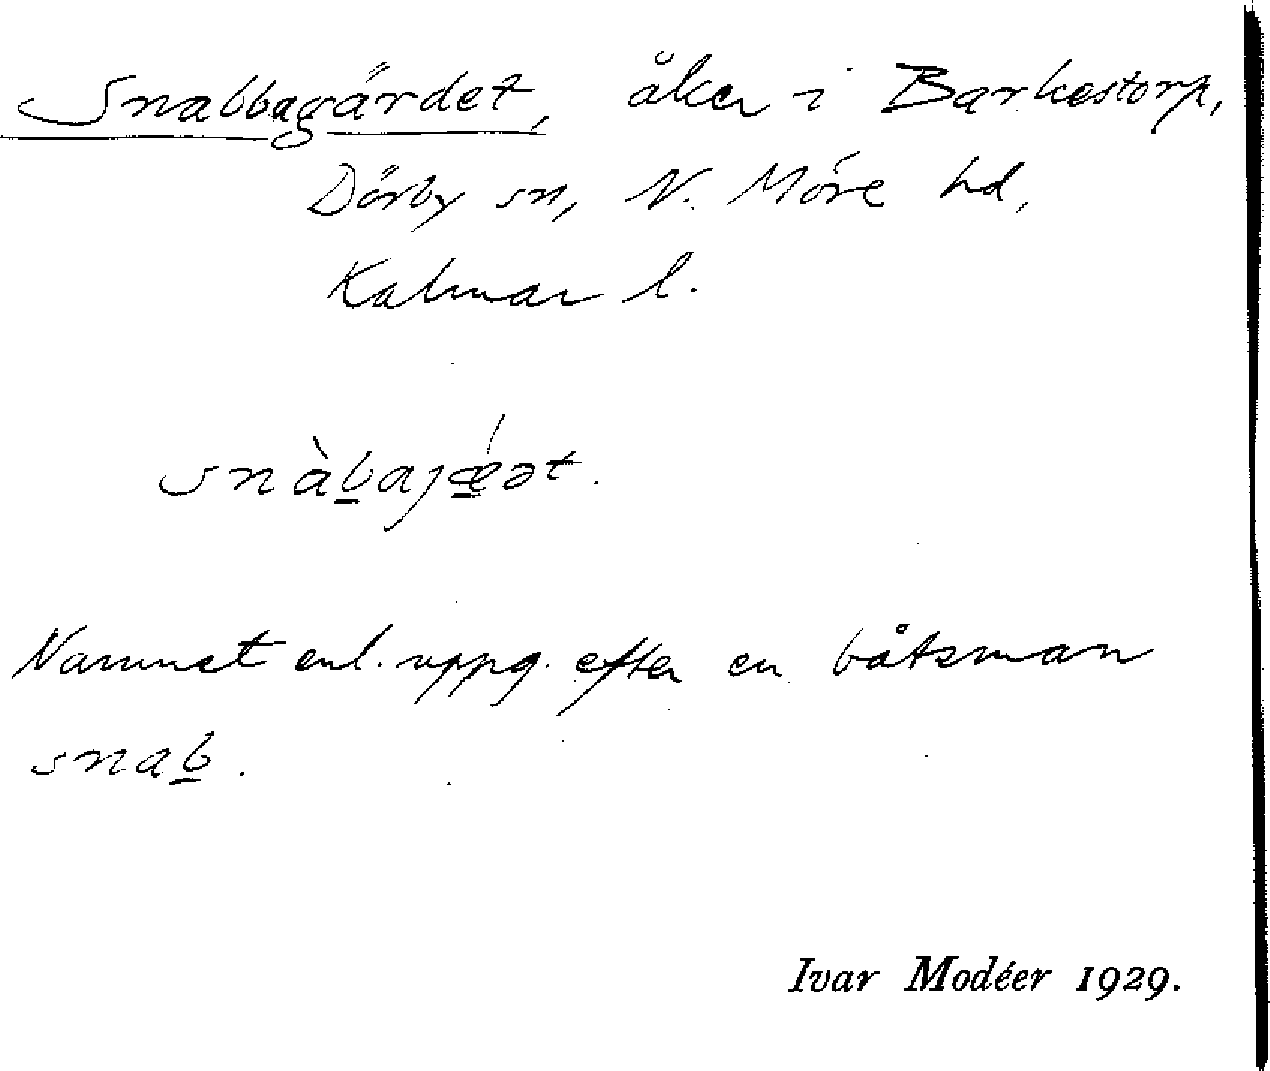 Snabbagärdet, åker i Barkestorp,
Dörby sn, N. Möre hd,
Kalmar l.
snàb̲ajǽ̲ət.
Namnet enl. uppg. efter en båtsman
snab̲.
Ivar Modéer 1929.